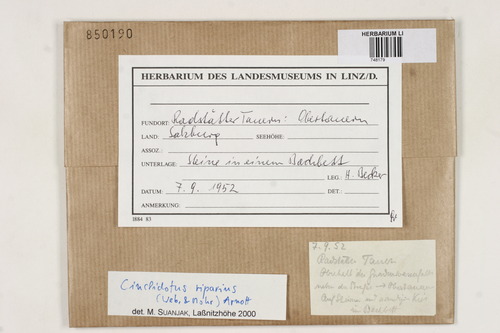 850190
HERBARIUM LI
748179
HERBARIUM DES LANDESMUSEUMS IN LINZ/D.
FUNDORT: Radstätter Tauern: Obertauern
LAND: Salzburg SEEHÖHE:
ASSOZ.:
UNTERLAGE: Steine in einem Bachbett
LEG.: H. Becker
DATUM: 7.9.1952 DET.:
ANMERKUNG:
1684 83
Cinclidotus riparius
(Web. & Mohr) Arnott
det. M. SUANJAK, Laßnitzhöhe 2000
7.9.52
Radstädter Tauern